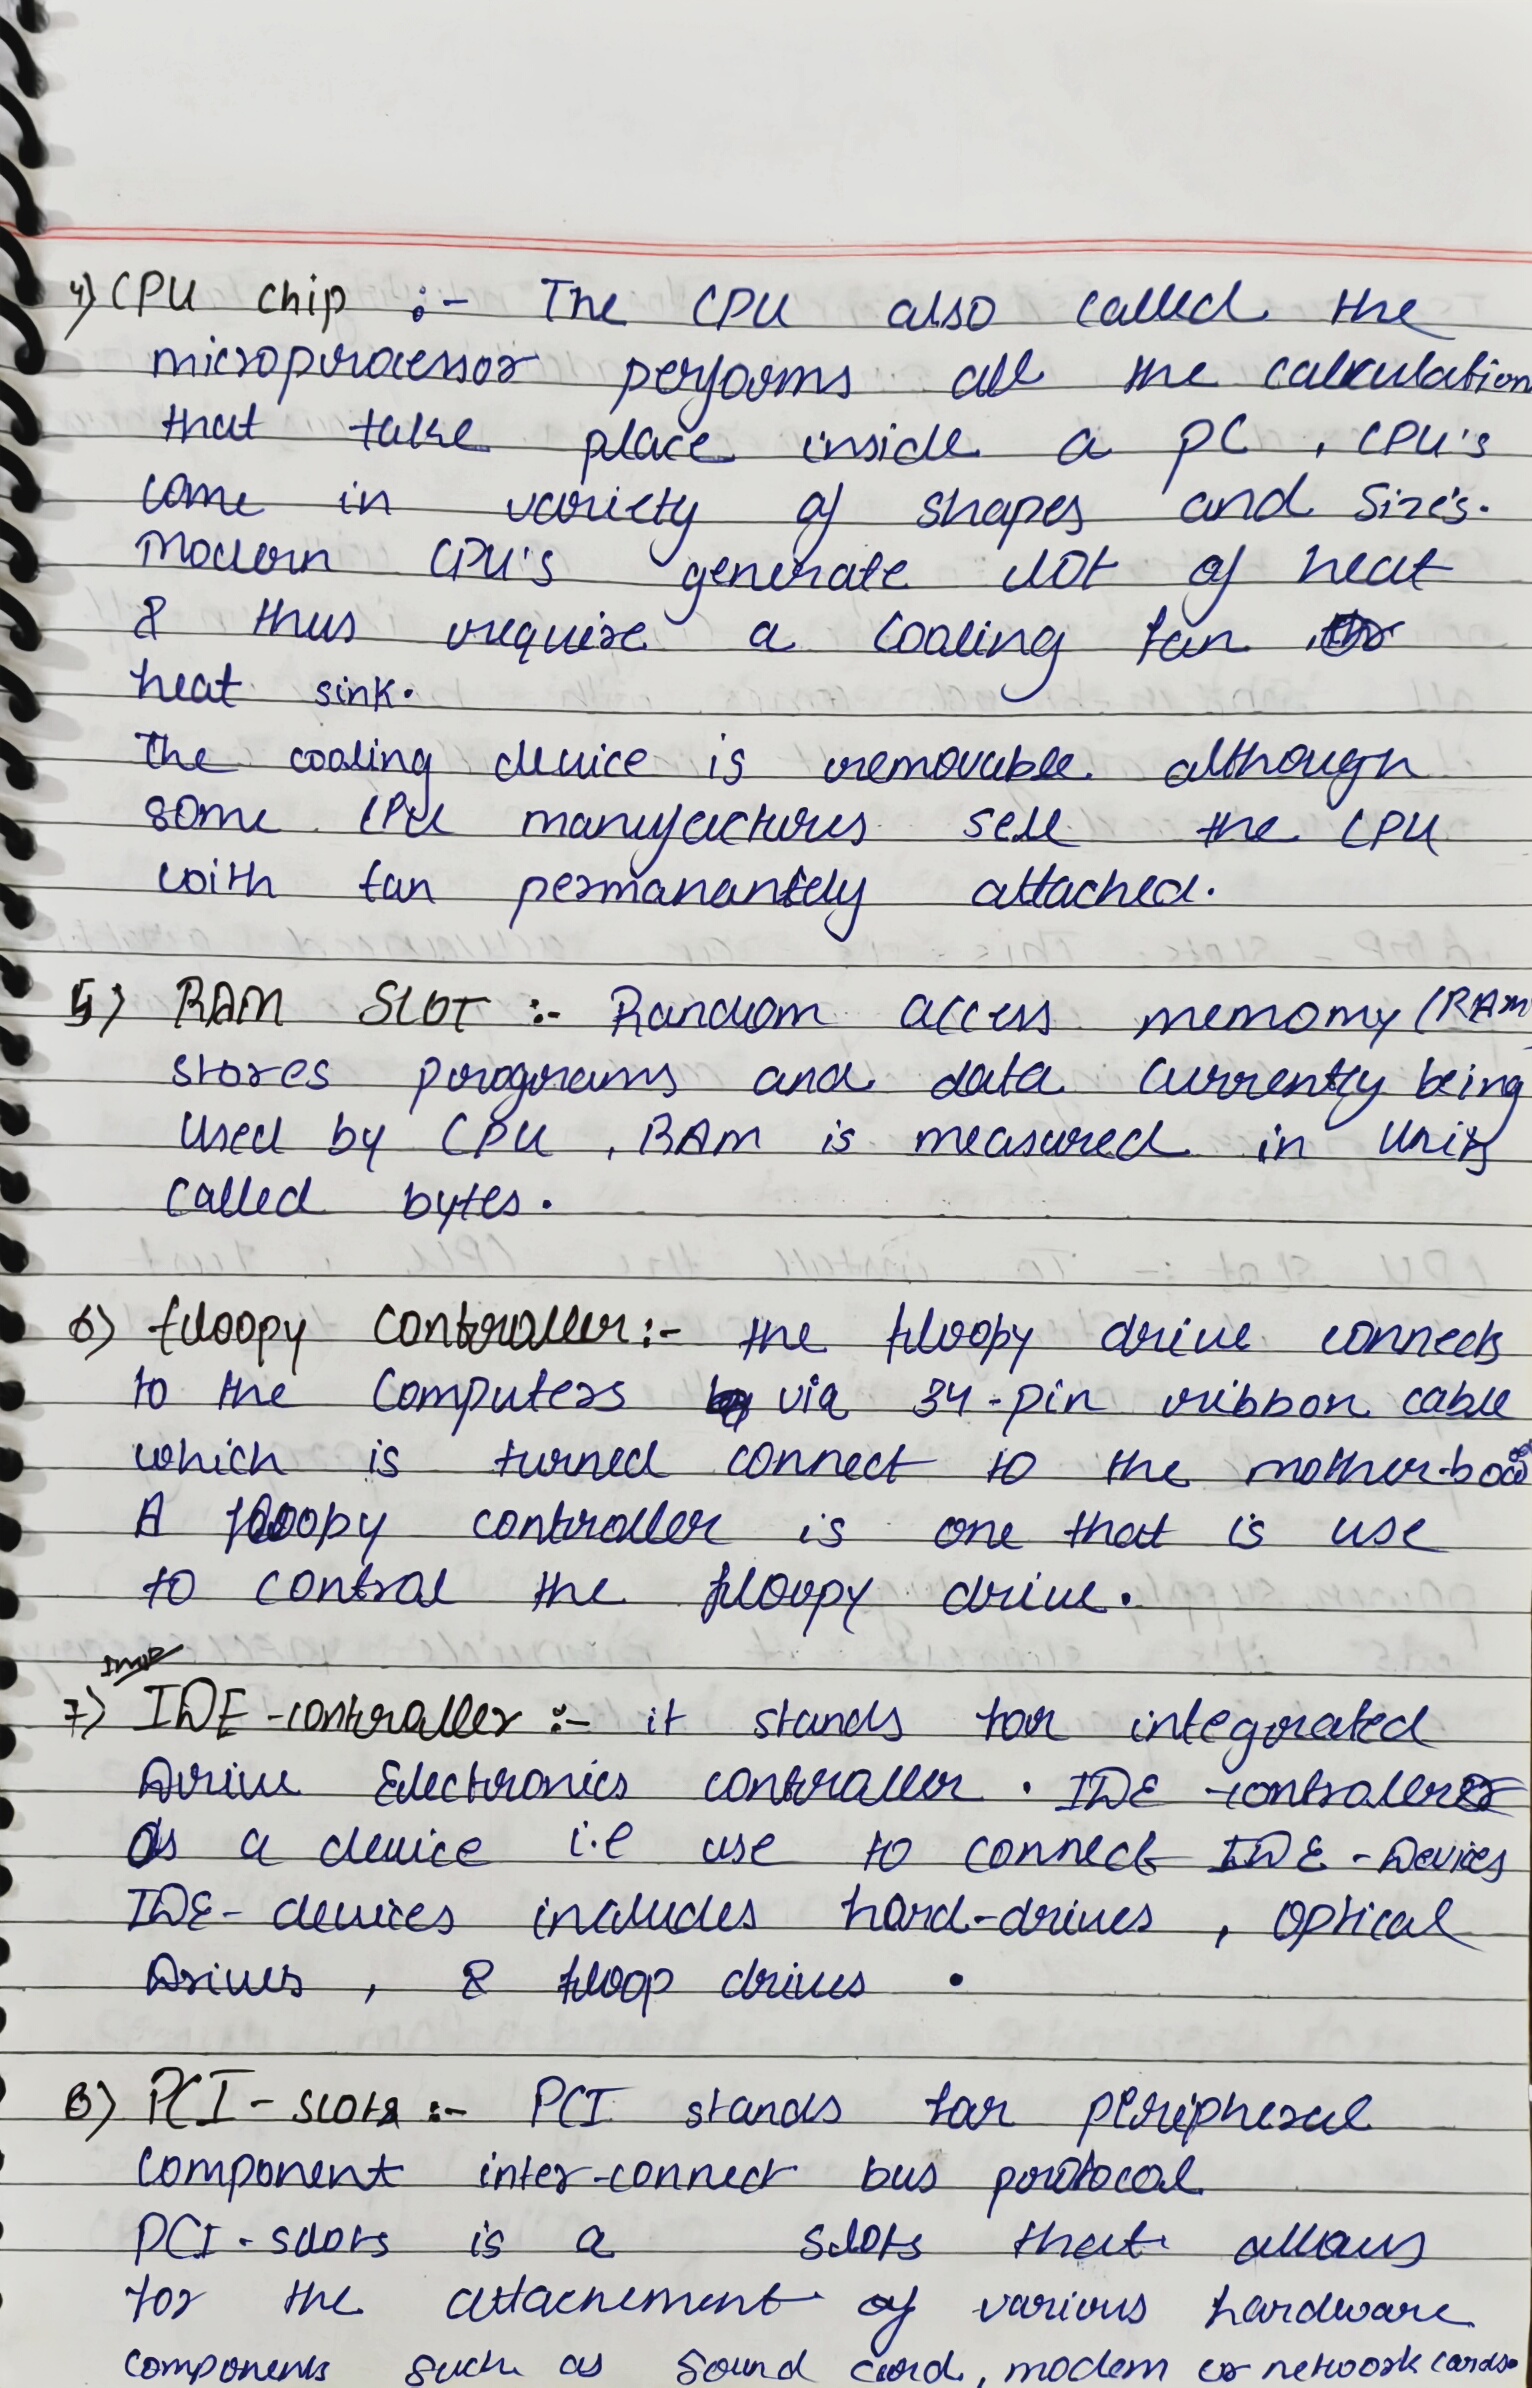 4) CPU chip :- The CPU also called the
microprocessor performs all the calculation
that take place inside a PC , CPU's
come in variety of shapes and Size's.
Modern CPU's generate lot of heat
& thus require a cooling fan or
heat sink.
The cooling device is removable although
some CPU manufactures sell the CPU
with fan permanantely attached.
5) RAM SLOT :- Random access memomy (RAM)
stores programs and data currently being
Used by CPU , RAM is measured in Units
called bytes.
6) floopy Controller :- the floopy drive connects
to the Computers via 34-pin ribbon cable
which is turned connect to the mother-board
A floopy controller is one that is use
to control the floopy drive.
Imp
7) IDE-controller :- it stands for integrated
Drive Electronics controller . IDE -controller
is a device i.e use to connect IDE - Devices
IDE- devices includes hard-drives , optical
Drives , & floop drives .
8) PCI - slots :- PCI stands for peripheral
component inter-connect bus protocol
PCI - slots is a slots that allows
for the attachement of various hardware
components such as sound card, modem or network cards.